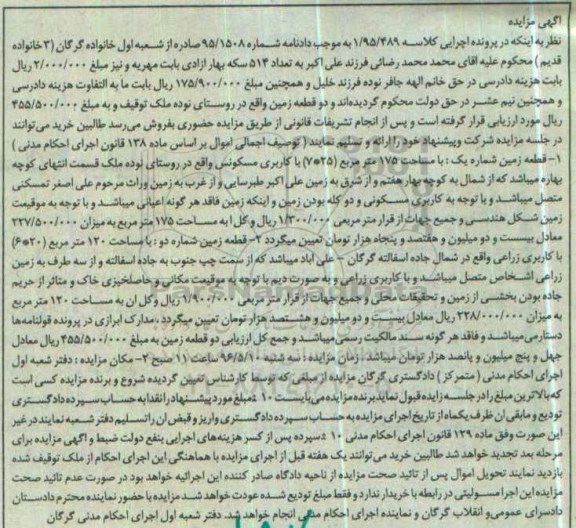 آگهی مزایده
نظر به اینکه در پرونده اجرایی کلاسه ۱/۹۵/۴۸۹ به موجب دادنامه شماره ۹۵/۱۵۰۸ صادره از شعبه اول خانواده گرگان (۳ خانواده
قدیم ) محکوم علیه آقای محمد محمد رضائی فرزند علی اکبر به تعداد ۵۱۴ سکه بهار آزادی بابت مهریه و نیز مبلغ ۲/۰۰۰/۰۰۰ ریال
بابت هزینه دادرسی در حق خانم الهه جافر نوده فرزند خلیل و همچنین مبلغ ۱۷۵/۹۰۰/۰۰۰ ریال بابت ما به التفاوت هزینه دادرسی
و همچنین نیم عشر در حق دولت محکوم گردیده‌اند و دو قطعه زمین واقع در روستای نوده ملک توقیف و به مبلغ ۴۵۵/۵۰۰/۰۰۰
ریال مورد ارزیابی قرار گرفته است و پس از انجام تشریفات قانونی از طریق مزایده حضوری بفروش می‌رسد طالبین خرید می‌توانند
در جلسه مزایده شرکت و پیشنهاد خود را ارائه و تسلیم نمایند ( توصیف اجمالی اموال بر اساس ماده ۱۳۸ قانون اجرای احکام مدنی )
۱- قطعه زمین شماره یک : با مساحت ۱۷۵ متر مربع (۲۵*۷) با کاربری مسکونی واقع در روستای نوده ملک قسمت انتهای کوچه
بهاره میباشد که از شمال به کوچه بهار هفتم و از شرق به زمین علی اکبر طبرسایی و از غرب به زمین وراث مرحوم علی اصغر تمسکنی
متصل میباشد و با توجه به کاربری مسکونی و دو کله بودن زمین و اینکه زمین فاقد هر گونه اعیانی میباشد و با توجه به موقعیت
زمین شکل هندسی و جمیع جهات از قرار متر مربعی ۱/۳۰۰/۰۰۰ ریال و کل آ به مساحت ۱۷۵ متر مربع به میزان ۲۲۷/۵۰۰/۰۰۰
معادل بیست و دو میلیون و هفتصد و پنجاه هزار تومان تعیین میگردد ۲- قطعه زمین شماره دو : با مساحت ۱۲۰ متر مربع (۲۰*۶)
با کاربری زراعی واقع در شمال جاده آسفالته گرگان - علی آباد میباشد که از سمت چپ جنوب به جاده آسفالته و از سه طرف به زمین
زراعی اشخاص متصل میباشد و با کاربری زراعی و به صورت دیم با توجه به موقعیت مکانی و حاصلخیزی خاک و متاثر از حریم
جاده بودن بخشی از زمین و تحقیقات محلی و جمیع جهات از قرار متر مربعی ۱/۹۰۰/۰۰۰ ریال و کل آن به مساحت ۱۲۰ متر مربع
به میزان ۲۲۸/۰۰۰/۰۰۰ ریال معادل بیست و دو میلیون و هشتصد هزار تومان تعیین میگردد . مدارک ابرازی در پرونده قولنامه‌ها
دستار می‌میباشد و فاقد هر گونه سند مالکیت رسمی میباشد و جمع کل ارزیابی دو قطعه زمین به مبلغ ۴۵۵/۵۰۰/۰۰۰ ریال معادل
چهل و پنج میلیون و پانصد هزار تومان میباشد . زمان مزایده : سه شنبه ۹۶/۵/۱۰ ساعت ۱۱ صبح ۲- مکان مزایده : دفتر شعبه اول
اجرای احکام مدنی ( متمرکز ) دادگستری گرگان مزایده از مبلغی که توسط کارشناس تعیین گردیده شروع و برنده مزایده کسی است
که بالاترین مبلغ را در جلسه زایده قبول نماید برنده مزایده می‌بایست ۱۰ ٪ مبلغ مورد پیشنهاد را نقدا به حساب سپرده دادگستری
تودیع و مابقی آن ظرف یکماه از تاریخ اجرای مزایده به حساب سپرده دادگستری واریز و قبض آن را تسلیم دفتر شعبه نمایند در غیر
این صورت وفق ماده ۱۲۹ قانون اجرای احکام مدنی ۱۰ ٪ سپرده پس از کسر هزینه‌های اجرایی بنفع دولت ضبط و آگهی مزایده برای
مرحله بعد تجدید خواهد شد طالبین خرید می‌توانند یک هفته قبل از اجرای مزایده با هماهنگی این اجرای احکام از ملک توقیف شده
بازدید نمایند تحویل اموال پس از تائید صحت مزایده از ناحیه دادگاه صادر کننده این اجرائیه خواهد بود در صورت عدم تائید صحت
مزایده این اجرا مسولیتی در رابطه با خریدار ندارد و فقط مبلغ تودیع شده عودت خواهد شد مزایده با حضور نماینده محترم دادستان
دادسرای عمومی و انقلاب گرگان و نماینده اجرای احکام مدنی انجام خواهد شد. دفتر شعبه اول اجرای احکام مدنی گرگان